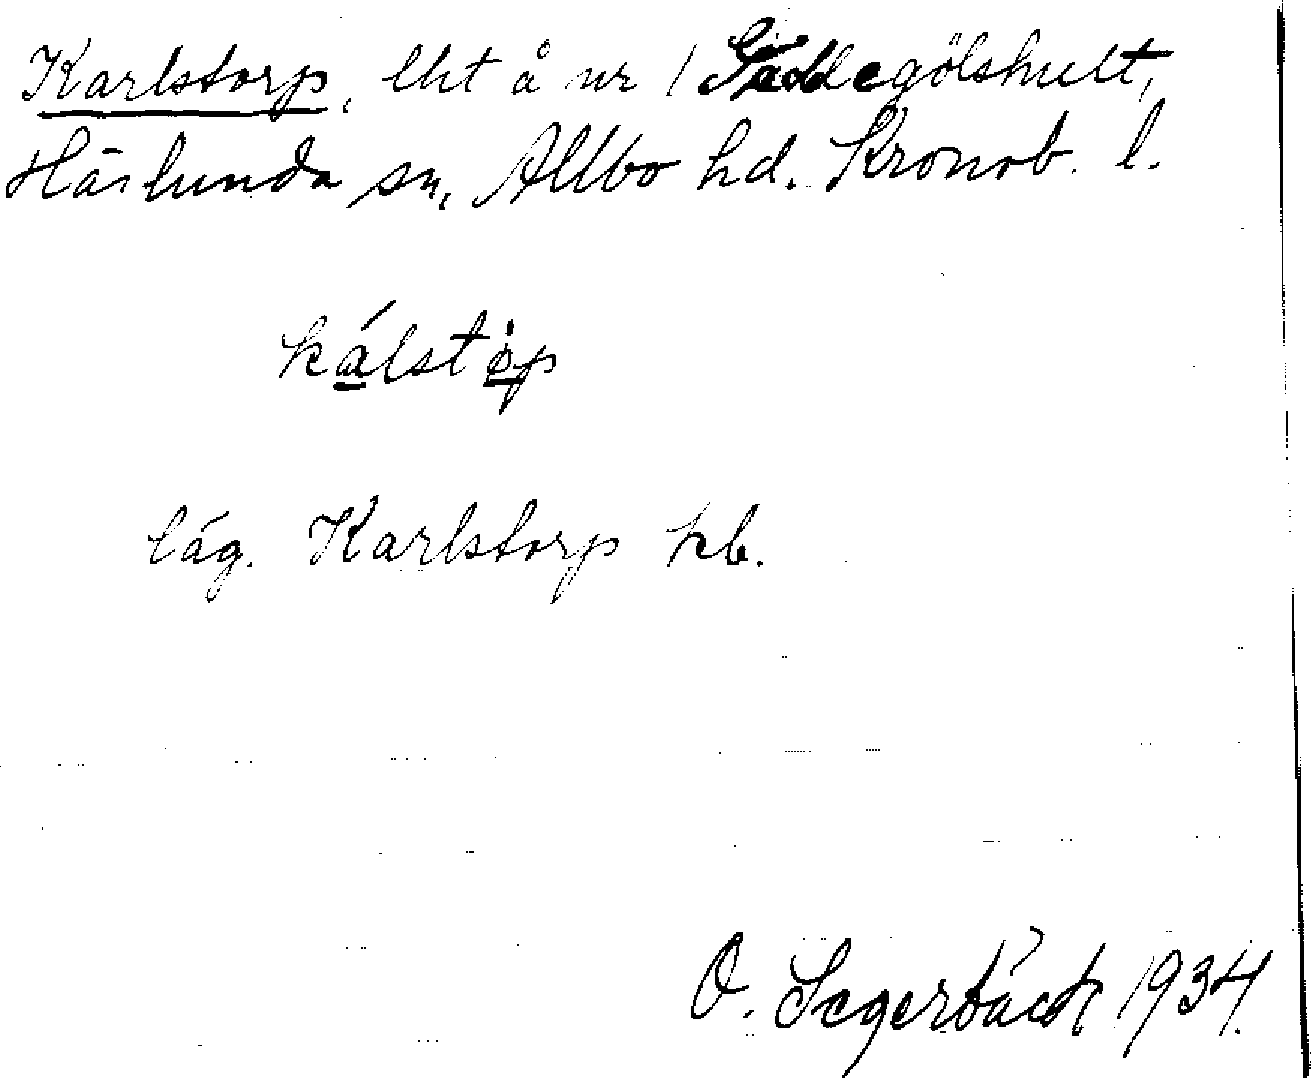 Karlstorp, lht å nr 1 Gäddegölshult,
Härlunda sn, Allbo hd. Kronob. l.
kálstòp
läg. Karlstorp kb.
O. Segerbäck 1934.